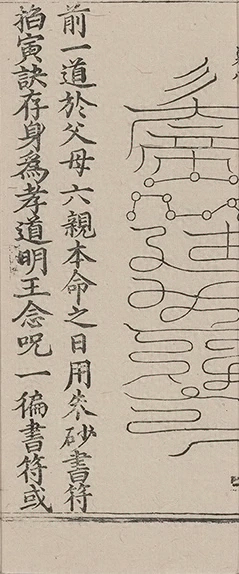 前一道於父母六親本命之日用朱砂書符
掐寅訣存身為孝道明王念呪一徧書符或